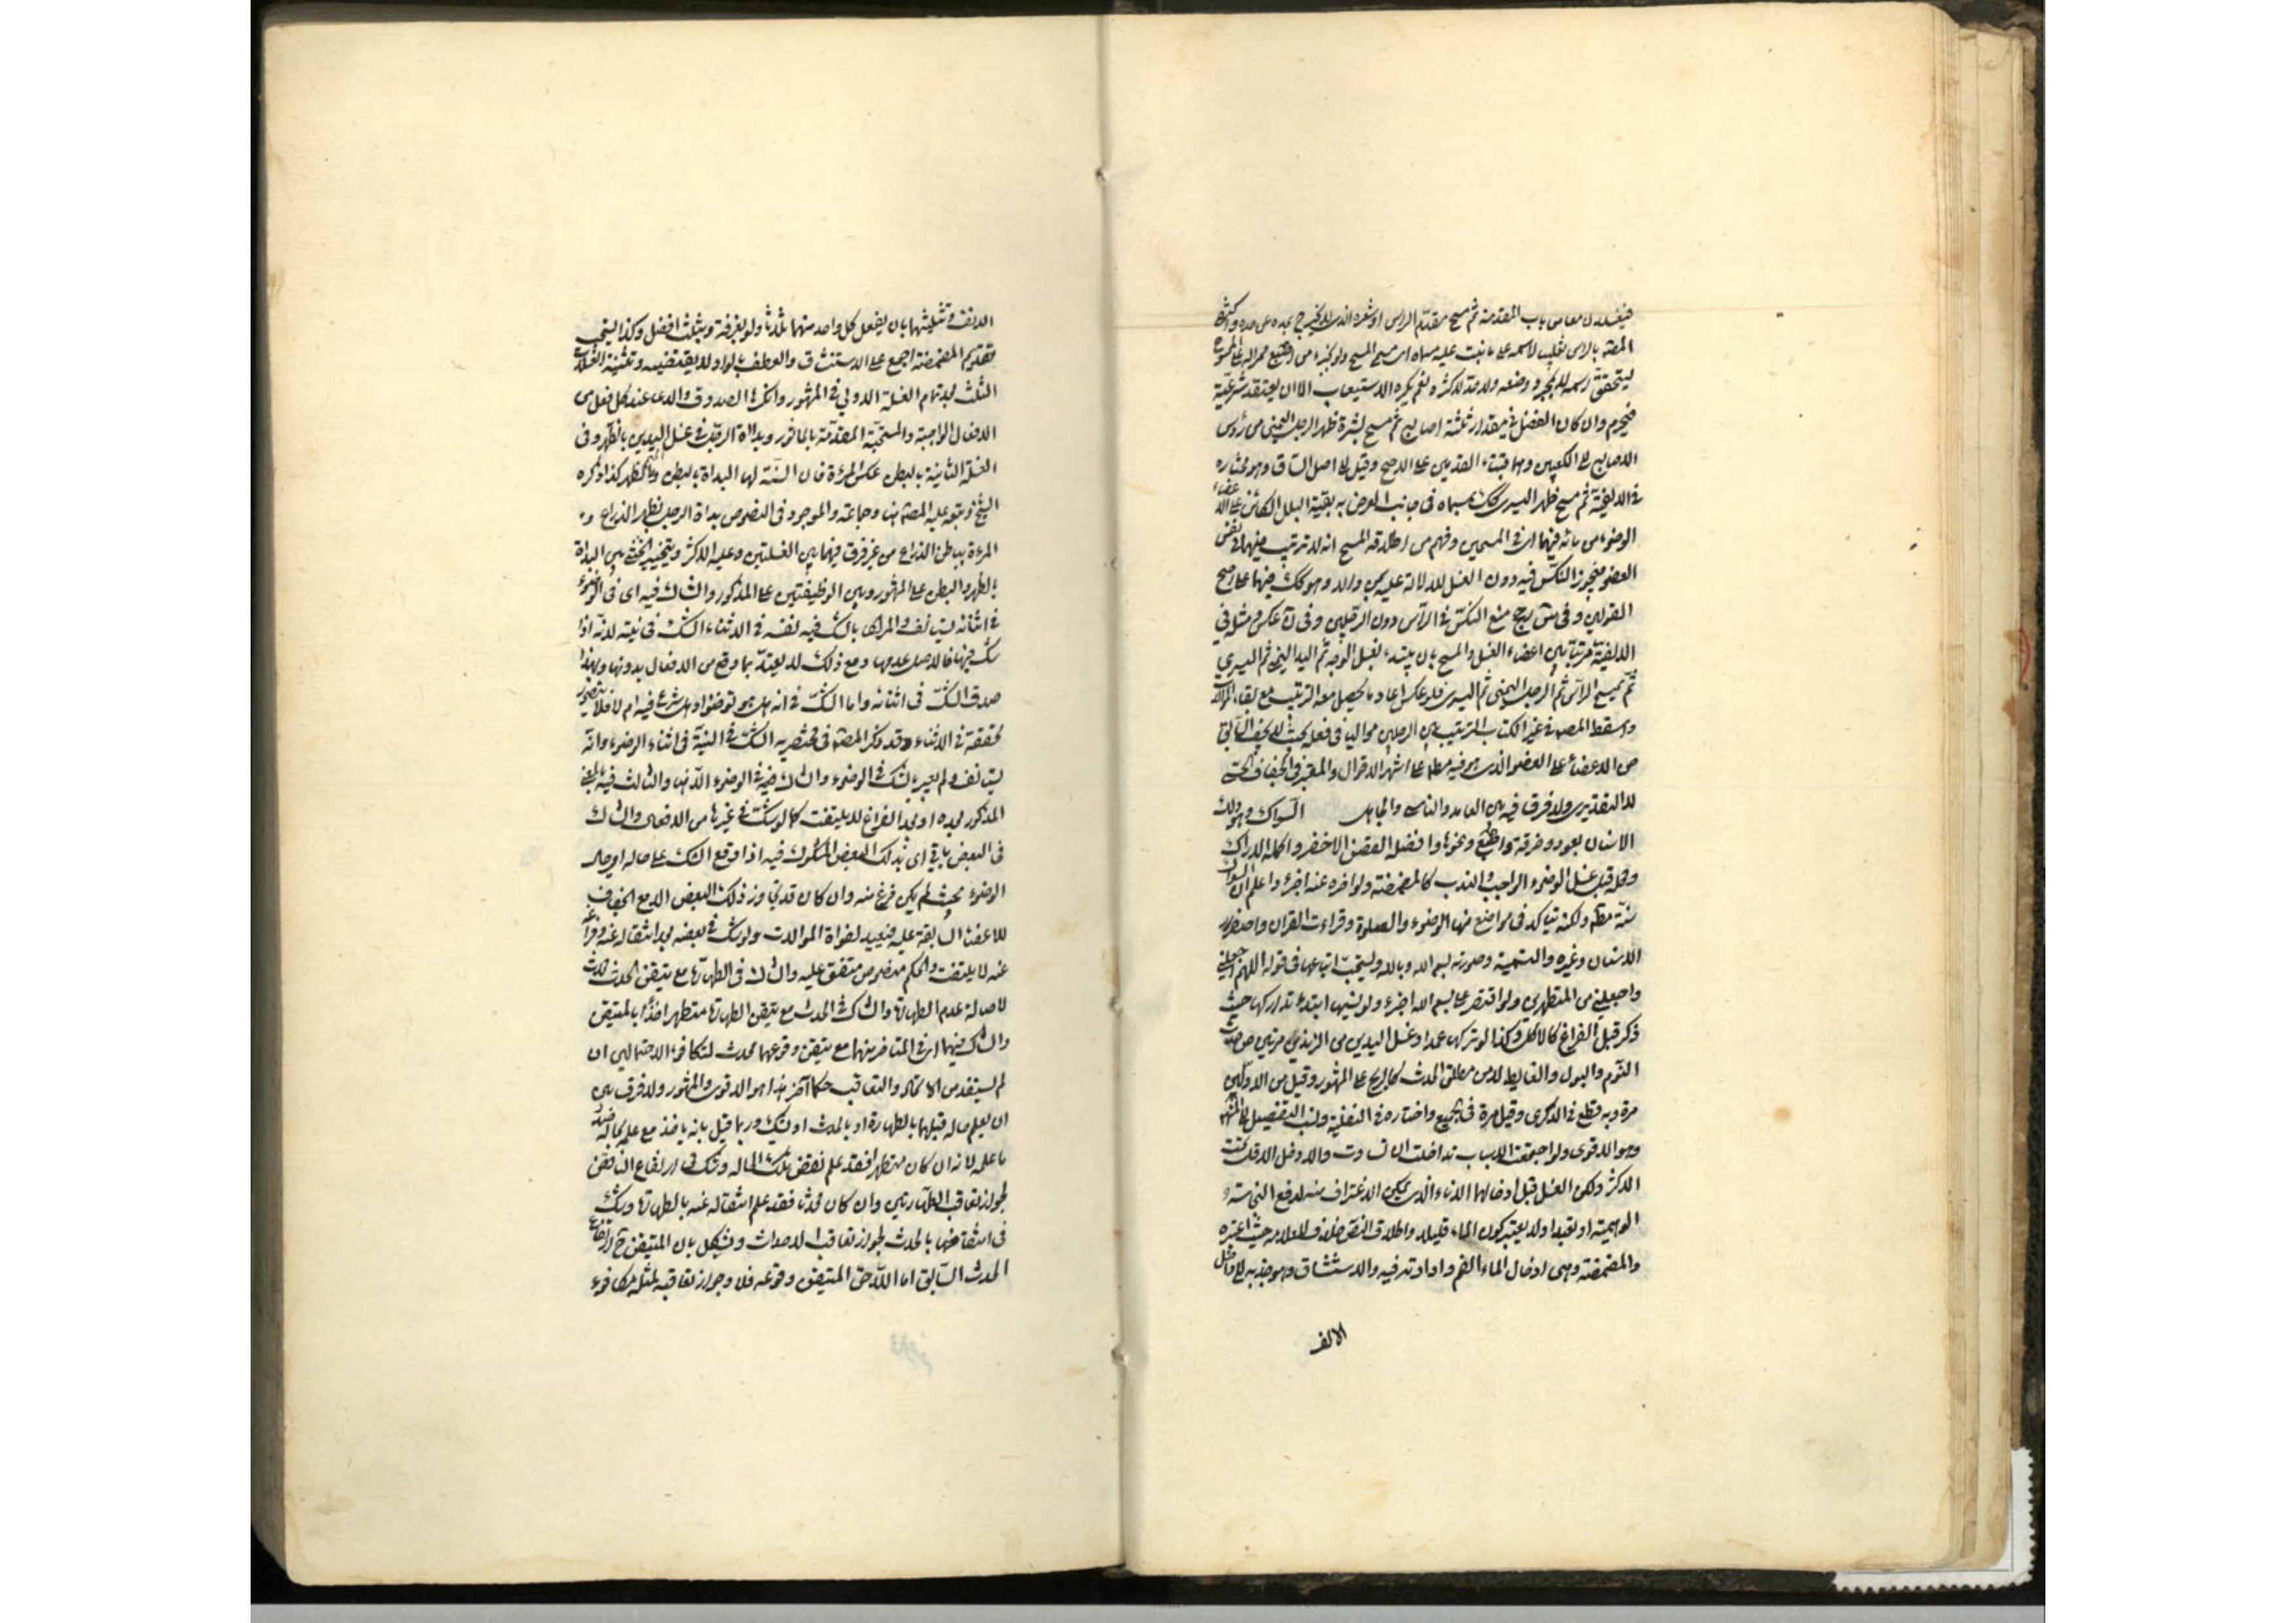 فيغسلان معا من باب المقدمة ثم مسح مقدم الراس او شعره الذى لا يخرج بمده عن حده واكتفى
المصنف بالراس تغليبا لاسمه على ما نبت عليه مسماه اى مسمى المسح ولو بجزء من اصبع ممرا له على الممسوح
ليتحقق اسمه لا بمجرد وضعه ولا حد لاكثره نعم يكره الاستيعاب الا ان يعتقد شرعيته
فيحرم وان كان الفضل فى مقدار ثلثة اصابع ثم مسح بشرة ظهر الرجل اليمنى من رؤس
الاصابع الى الكعبين وهما قبتا القدمين على الاصح وقيل الى اصل الساق وهو مختاره
فى الالفية ثم مسح ظهر اليسرى كك بمسماه فى جانب العرض به بقية البلل الكائن على اعضاء
الوضوء من مائه فيهما اى فى المسحين وفهم من اطلاقه المسح انه لا ترتيب فيهما فى نفس
العضو فيجوز النكس فيه دون الغسل للدلالة عليه بمن والى وهو كك فيهما على اصح
القولين وفى س رجح منع النكس فى الراس دون الرجلين وفى ن عكس ومثله فى
الالفية مرتبا بين اعضاء الغسل والمسح بان يبتدء بغسل الوجه ثم اليد اليمنى ثم اليسرى
ثم يمسح الراس ثم الرجل اليمنى ثم اليسرى فلو عكس اعاد ما يحصل معه الترتيب مع بقاء الموالاة
واسقط المصنف فى غير الكتاب الترتيب بين الرجلين مواليا فى فعله بحيث لا يجف السابق
من الاعضاء على العضو الذى هو فيه مطلقا على اشهر الاقوال والمعتبر فى الجفاف الحسى
لا التقديرى ولا فرق فيه بين العامد والناسى والجاهل السواك وهو دلك
الاسنان بعود وخرقة واصبع ونحوها وافضله الغصن الاخضر واكمله الاراك
ومحله قبل غسل الوضوء الواجب والندب كالمضمضة ولو اخره عنه اجزء واعلم ان السواك
سنة مطلقا ولكنه يتاكد فى مواضع منها الوضوء والصلوة وقراءت القران واصفرار
الاسنان وغيره والتسمية وصورته بسم الله وبالله ويستحب اتباعها فى قوله اللهم اجعلنى
واجعلنى من المتطهرين ولو اقتصر على بسم الله اجزء ولو نسيها ابتداء تداركها حيث
ذكر قبل الفراغ كالاكل وكذا لو تركها عمدا وغسل اليدين من الزندين مرتين من حدث
النوم والبول والغايط لا من مطلق الحدث كالريح على المشهور وقيل من الاولين
مرة وبه قطع فى الذكرى وقيل مرة فى الجميع واختاره فى النفلية ونسب التفصيل الى المشهور
وهو الاقوى ولو اجتمعت الاسباب تداخلت ان تساوت والا دخل الاقل تحت
الاكثر وليكن الغسل قبل ادخالها الاناء الذى يمكن الاغتراف منه لدفع النجاسة
الوهمية او تعبدا ولا يعتبر كون الماء قليلا واطلاق النص خلافا للعلامة حيث اعتبره
والمضمضة وهى ادخال الماء الفم وادارته فيه والاستنشاق وهو جذبه الى داخل
الالف
الانف وتثليثهما بان يفعل كل واحد منهما ثلاثا ولو بغرفة وبثلث افضل وكذا يستحب
تقديم المضمضة اجمع على الاستنشاق والعطف بالواو لا يقتضيه وتثنية الغسلات
الثلث بعد تمام الغسلة الاولى فى المشهور وانكرها الصدوق والدعاء عند كل فعل من
الافعال الواجبة والمستحبة المتقدمة بالماثور وبداة الرجل فى غسل اليدين بالظهر وفى
الغسلة الثانية بالبطن عكس المرءة فان السنة لها البداة بالبطن والختم بالظهر كذا ذكره
الشيخ وتبعه عليه المصنف هنا وجماعة والموجود فى النصوص بداة الرجل بظهر الذراع و
المرءة بباطن الذراع من غير فرق فيهما بين الغسلتين وعليه الاكثر ويتخير الخنثى بين البداة
بالظهر والبطن على المشهور وبين الوظيفتين على المذكور والشاك فيه اى فى الوضوء
فى اثنائه يستانف والمراد بالشك فيه نفسه فى الاثناء الشك فى نيته لانه اذا
شك فيها فالاصل عدمها ومع ذلك لا يعتد بما وقع من الافعال بدونها وبهذا
صدق الشك فى اثنائه واما الشك فى انه هل هو توضؤ او هل شرع فيه ام لا فلا يتصور
تحققه فى الاثناء وقد ذكر المصنف فى مختصريه الشك فى النية فى اثناء الوضوء وانه
يستانف ولم يعبر بالشك فى الوضوء والشاك فيه فى الوضوء الا هنا والشاك فيه بالمعنى
المذكور بعده او بعد الفراغ لا يلتفت كما لو شك فى غيرها من الافعال والشاك
فى البعض ياتى اى بذلك البعض المشكوك فيه اذا وقع الشك على حاله اى حال
الوضوء بحيث لم يكن فرغ منه وان كان قد تجاوز ذلك البعض الا مع الجفاف
للاعضاء السابقة عليه فيعيد لفوات الموالات ولو شك فى بعضه بعد انتقاله عنه وفراغه
عنه لا يلتفت والحكم منصوص متفق عليه والشاك فى الطهارة مع تيقن الحدث محدث
لاصالة عدم الطهارة والشاك فى الحدث مع تيقن الطهارة متطهر اخذا بالمتيقن
والشاك فيهما اى فى المتاخر منهما مع تيقن وقوعهما محدث لتكافؤ الاحتمالين ان
لم يستفد من الاتحاد والتعاقب حكما اخر هذا هو الاقوى والمشهور ولا فرق بين
ان يعلم حاله قبلهما بالطهارة او بالحدث او يشك وربما قيل بانه ياخذ مع علمه بحاله ضد
ما علمه لانه ان كان متطهرا فقد علم نقض تلك الحاله وشك فى ارتفاع الناقض
لجواز تعاقب الطهارتين وان كان محدثا فقد علم انتقاله عنه بالطهارة وشك
فى انتقاضها بالحدث لجواز تعاقب الاحداث ويشكل بان المتيقن ح ارتفاع
الحدث السابق اما اللاحق المتيقن وقوعه فلا وجواز تعاقبه لمثله مكافوء